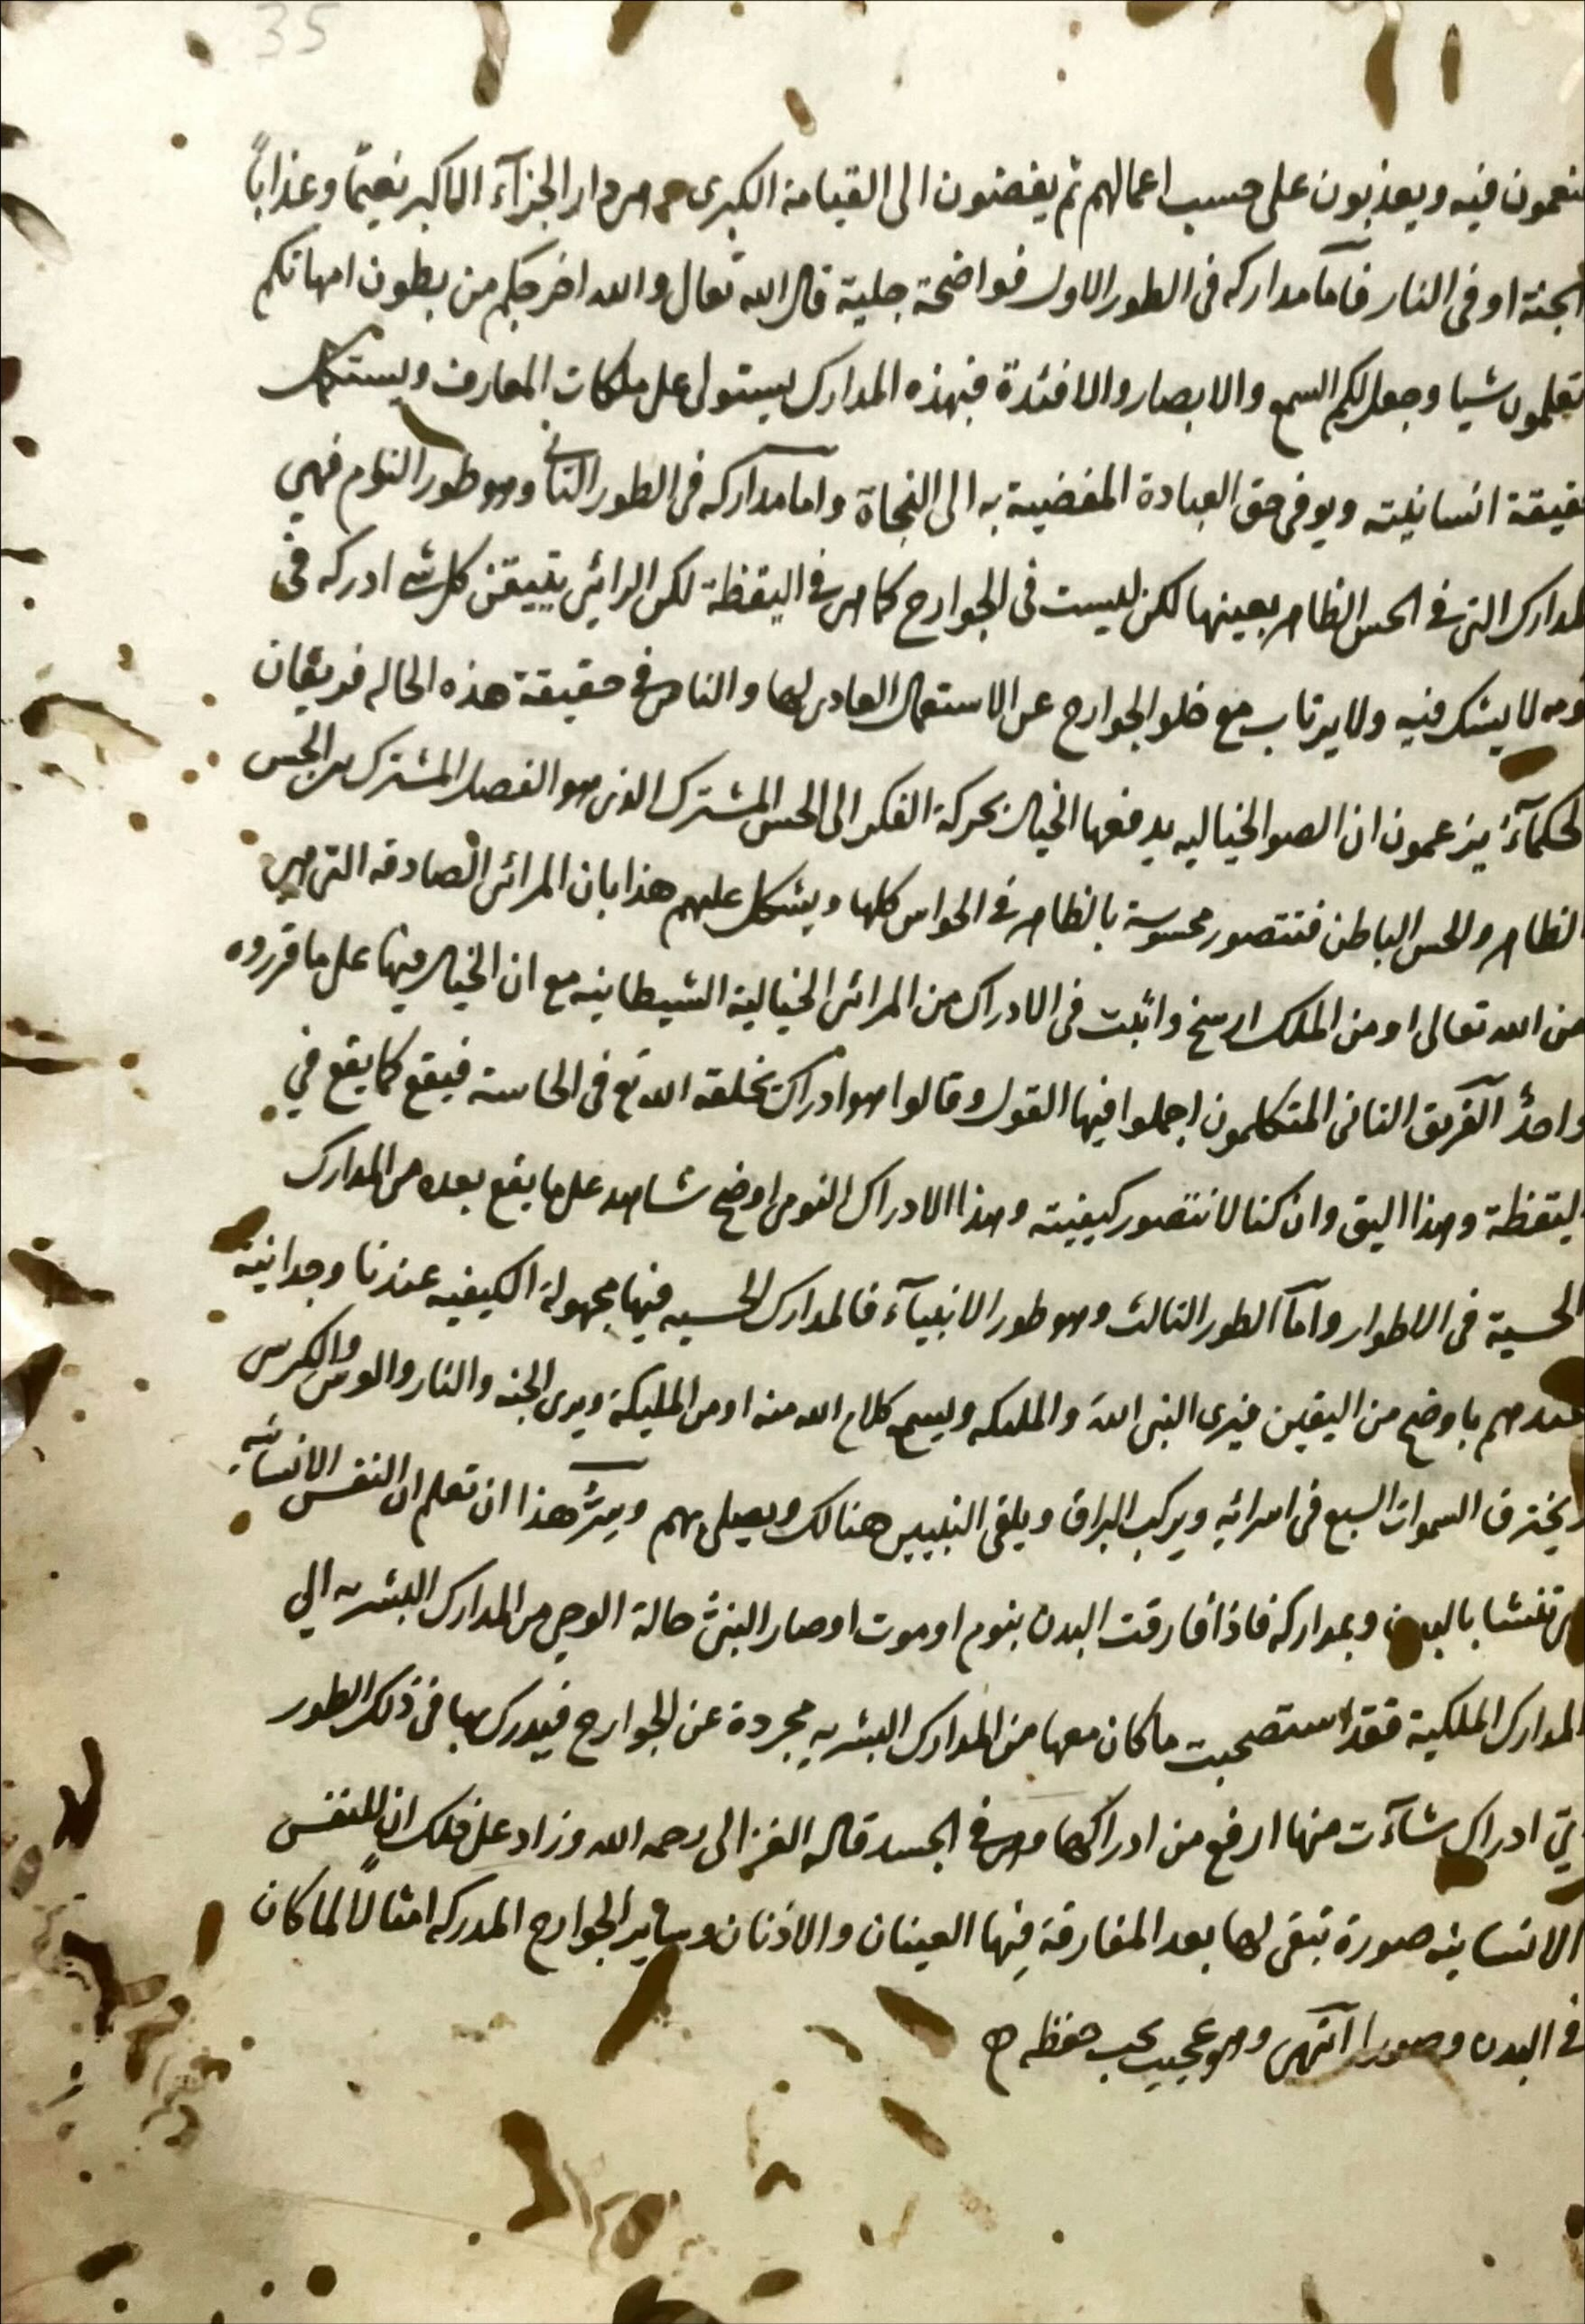 35
ينعمون فيه ويعذبون على حسب اعمالهم ثم يفضون الى القيامة الكبرى وهى دار الجزآء الاكبر نعيمًا وعذابًا
الجنة او فى النار فاما مداركه فى الطور الاول فواضحة جلية قال الله تعالى والله اخرجكم من بطون امهاتكم
تعلمون شيا وجعل لكم السمع والابصار والافئدة فبهذه المدارك يستولى على ملكات المعارف ويستكمل
حقيقة انسانيته ويوفى حق العبادة المفضية به الى النجاة واما مداركه فى الطور الثانى وهو طور النوم فهى
المدارك التى فى الحس الظاهر بعينها لكن ليست فى الجوارح كما هى فى اليقظة لكن الرائى يتيقن كل شى ادركه فى
نومه لا يشك فيه ولا يرتاب مع خلو الجوارح عن الاستعمال العادى لها والناس فى حقيقة هذه الحاله فريقان
الحكمآء يزعمون ان الصو الخياليه يدفعها الخيال بحركة الفكر الى الحس المشترك الذى هو الفصل المشترك بين الحس
الظاهر والحس الباطن فتتصور محسوسة بالظاهر فى الحواس كلها ويشكل عليهم هذا بان المرائى الصادقه التى هى
من الله تعالى او من الملك ارسخ واثبت فى الادراك من المرائى الخيالية الشيطانيه مع ان الخيال فيها على ما قرروه
واحدٌ الفريق الثانى المتكلمون اجملوا فيها القول وقالوا هو ادراك يخلقه الله تع فى الحاسة فيقع كما يقع في
اليقظة وهذا اليق وان كنا لا نتصور كيفيته وهذا الادراك النومى اوضح شاهد على ما يقع بعده من المدارك
الحسية فى الاطوار واما الطور الثالث وهو طور الانبيآء فالمدارك الحسيه فيها مجهولة الكيفيه عندنا وجدانية
عندهم باوضح من اليقين فيرى النبى الله والملئكه ويسمع كلام الله منه او من المليكة ويرى الجنه والنار والعرش والكرسى
ويخترق السموات السبع فى اسرائه ويركب البراق ويلقى النبيين هنالك ويصلى بهم وسر هذا ان تعلم ان النفس الانسانيه
هى تنشا بالبدن وبمداركه فاذا فارقت البدن بنوم او موت او صار النبى حالة الوحى من المدارك البشريه الي
المدارك الملكية فقد استصحبت ما كان معها من المدارك البشريه مجردة عن الجوارح فيدرك بها فى ذلك الطور
اي ادراك شاءت منها ارفع من ادراكها وهى فى الجسد قاله الغزالى رحمه الله وزاد على ذلك ان للنفس
الانسانيه صورة تبقى لها بعد المفارقة فيها العينان والاذنان وساير الجوارح المدركه امثالًا لما كان
فى البدن وصورا انتهى وهو عجيب يجب حفظه ح